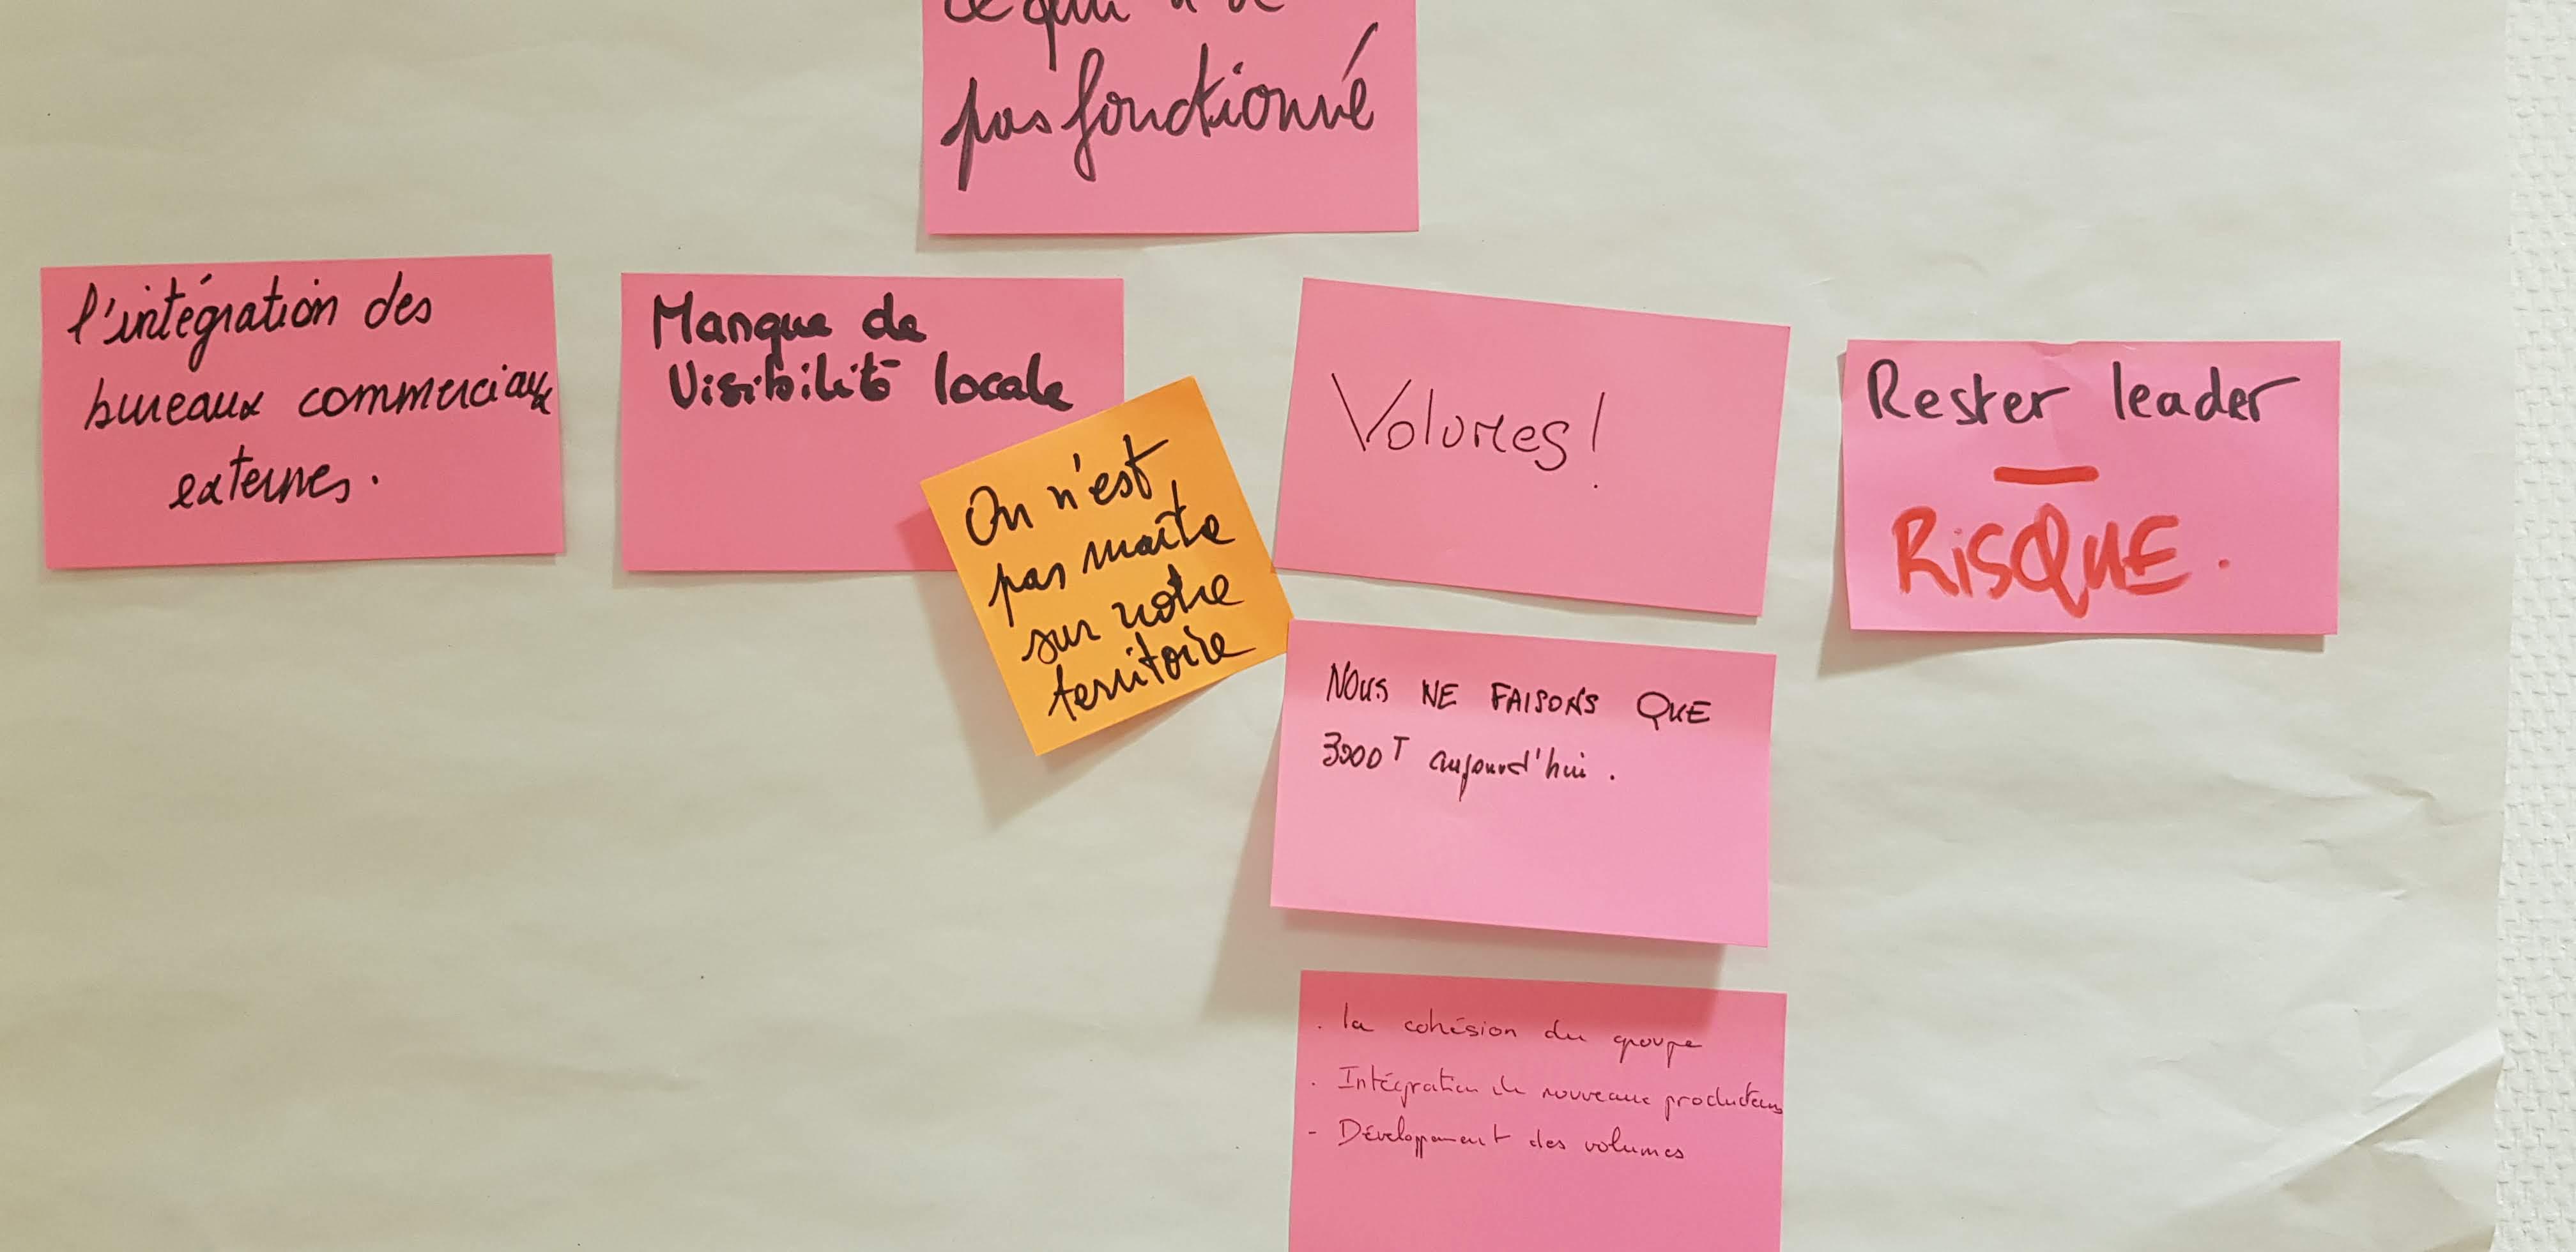 pas fonctionné
l'intégration des
bureaux commerciaux
externes.
Manque de
Visibilité locale
On n'est
pas maître
sur notre
territoire
Volumes!
Rester leader
RiSQUE.
NOUS NE FAISONS QUE
3000T aujourd'hui.
. la cohésion du groupe
. Intégration de nouveaux producteurs
- Développement des volumes